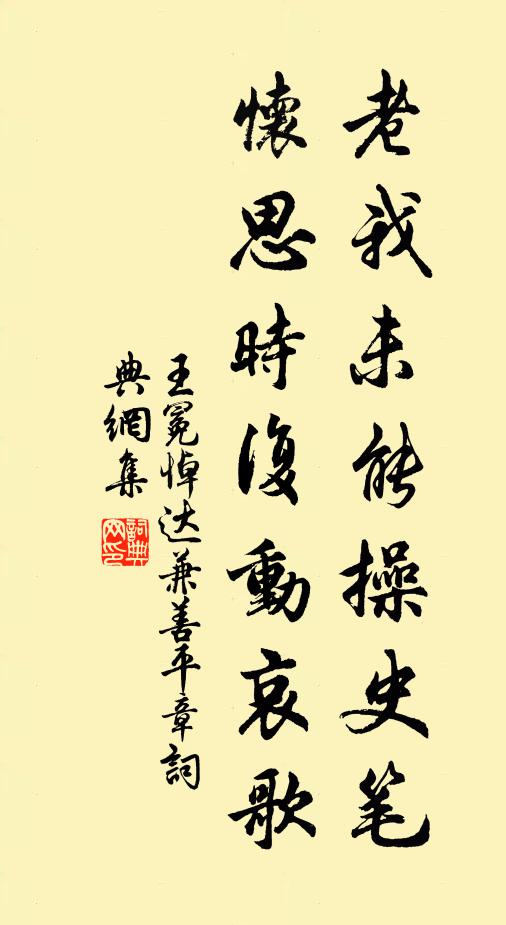 老我未能操史笔
懷思時復動哀歌
王冕悼达兼善平章詞
典網集
詞典网印